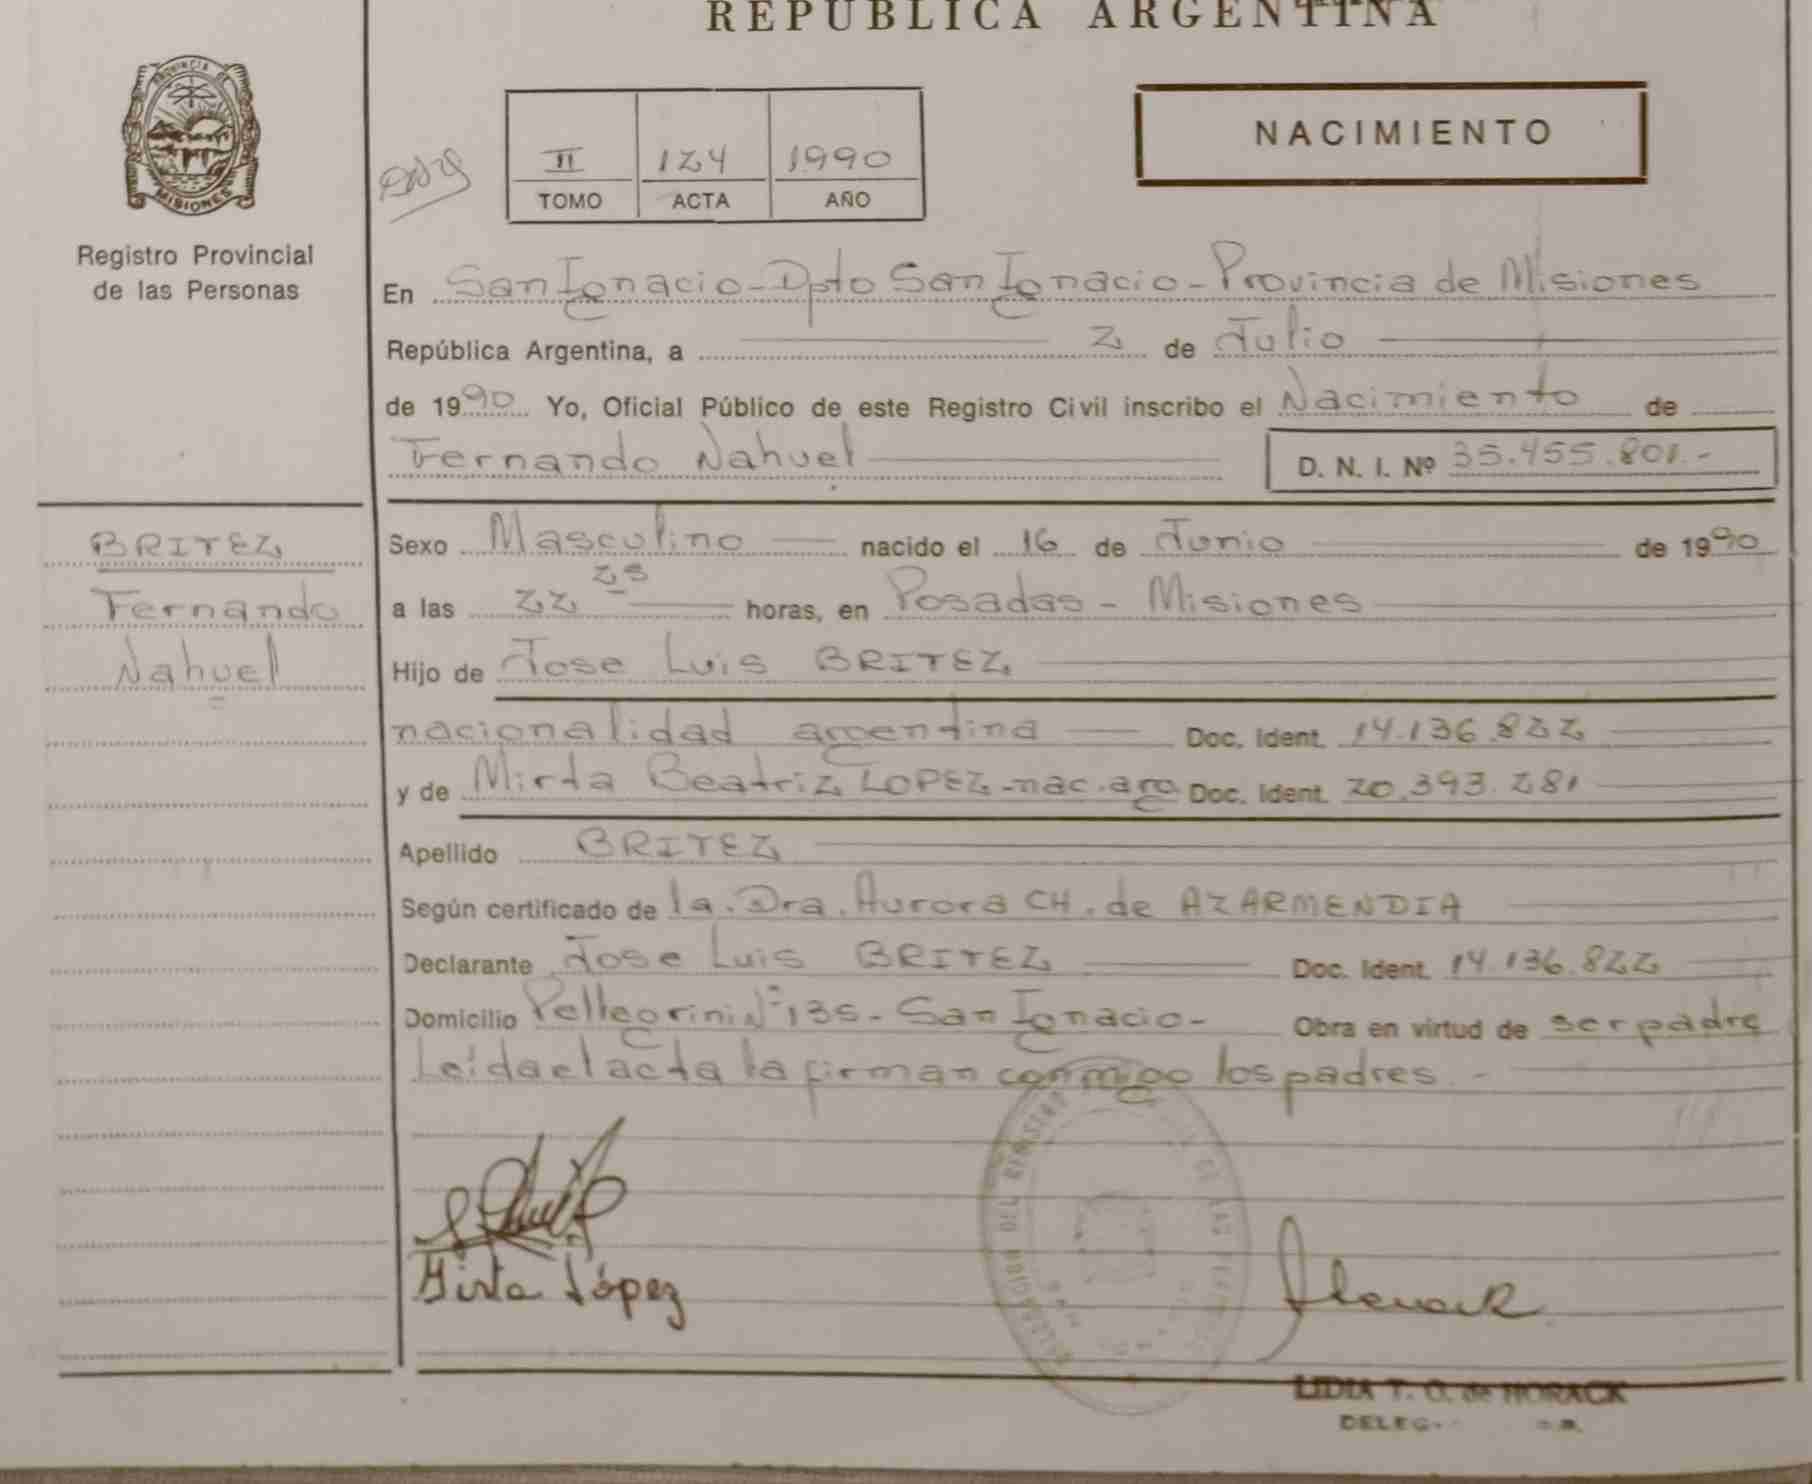 REPUBLICA ARGENTINA
PROVINCIA DE
MISIONES
Registro Provincial
de las Personas
II 124 1990
TOMO ACTA AÑO
NACIMIENTO
En San Ignacio - Dpto San Ignacio - Provincia de Misiones
República Argentina, a 2 de Julio
de 1990 Yo, Oficial Público de este Registro Civil inscribo el Nacimiento de
Fernando Nahuel D. N. I. Nº 35.455.801.-
BRITEZ
Fernando
Nahuel
Sexo Masculino nacido el 16 de Junio de 1990
a las 22 25 horas, en Posadas - Misiones
Hijo de Jose Luis BRITEZ
nacionalidad argentina Doc. Ident. 14.136.822
y de Mirta Beatriz LOPEZ - nac. arg Doc. Ident. 20.393.281
Apellido BRITEZ
Según certificado de la Dra. Aurora CH. de AZARMENDIA
Declarante Jose Luis BRITEZ Doc. Ident. 14.136.822
Domicilio Pellegrini Nº 135 - San Ignacio - Obra en virtud de ser padre
Leida el acta la firman conmigo los padres. -
Mirta López
LIDIA T. O. de HORACK